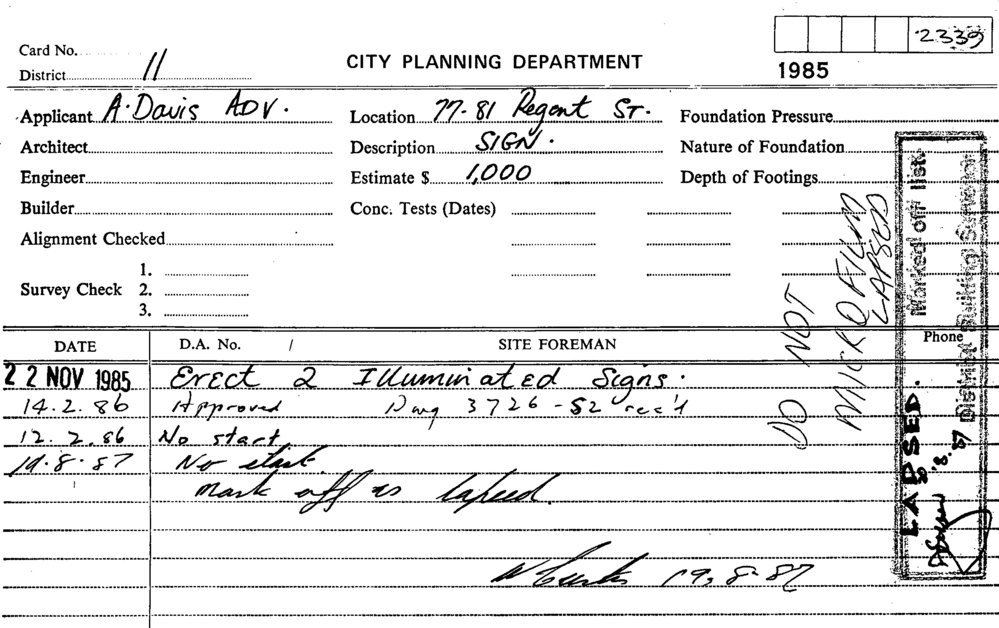 2339
Card No.
District 11
CITY PLANNING DEPARTMENT
1985
Applicant A. Davis ADV.
Location 77-81 Regent St.
Foundation Pressure
Architect
Description SIGN.
Nature of Foundation
Engineer
Estimate $ 1,000
Depth of Footings
Builder
Conc. Tests (Dates)
Alignment Checked
Survey Check
1.
2.
3.
DO NOT
MICROFILM
LAPSED
Marked off list.
District Building Surveyor
LAPSED.
.8.87
DATE
D.A. No. /
SITE FOREMAN
Phone
22 NOV 1985 Erect 2 Illuminated Signs.
14.2.86 Approved Dwg 3726-S2 rec'd
12.2.86 No start
19.8.87 No start.
Mark off as lapsed.
19.8.87